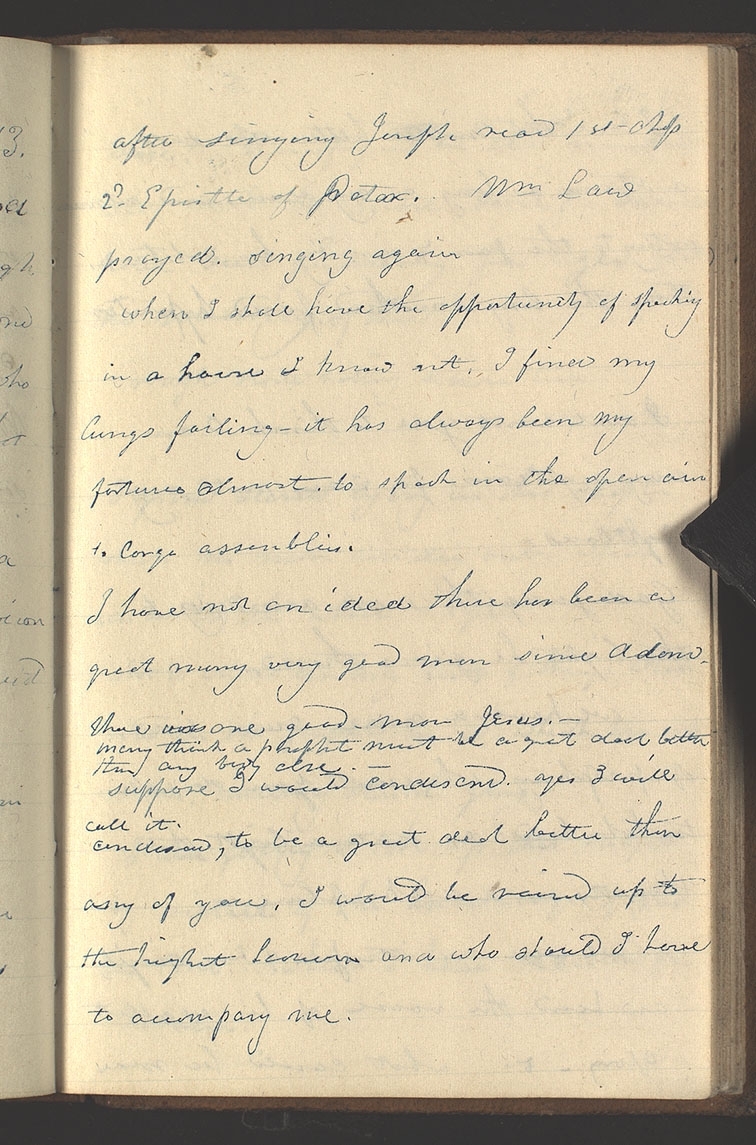 after singing Joseph read 1st chap
2d. Epistle of Peter. Wm Law
prayed. singing again
when I shall have the opportunity of speaking
in a house I know not. I find my
lungs failing - it has always been my
fortune almost. to speak in the open air
to large assemblies.
I have not an idea there has been a
great many very good men since Adam.
there was one good - man Jesus. -
many think a prophet must be a great deal better
than any body else. -
suppose I would condescend. yes I will
call it.
condescend, to be a great deal better than
any of you. I would be raised up to
the highest heaven and who should I have
to accompany me.